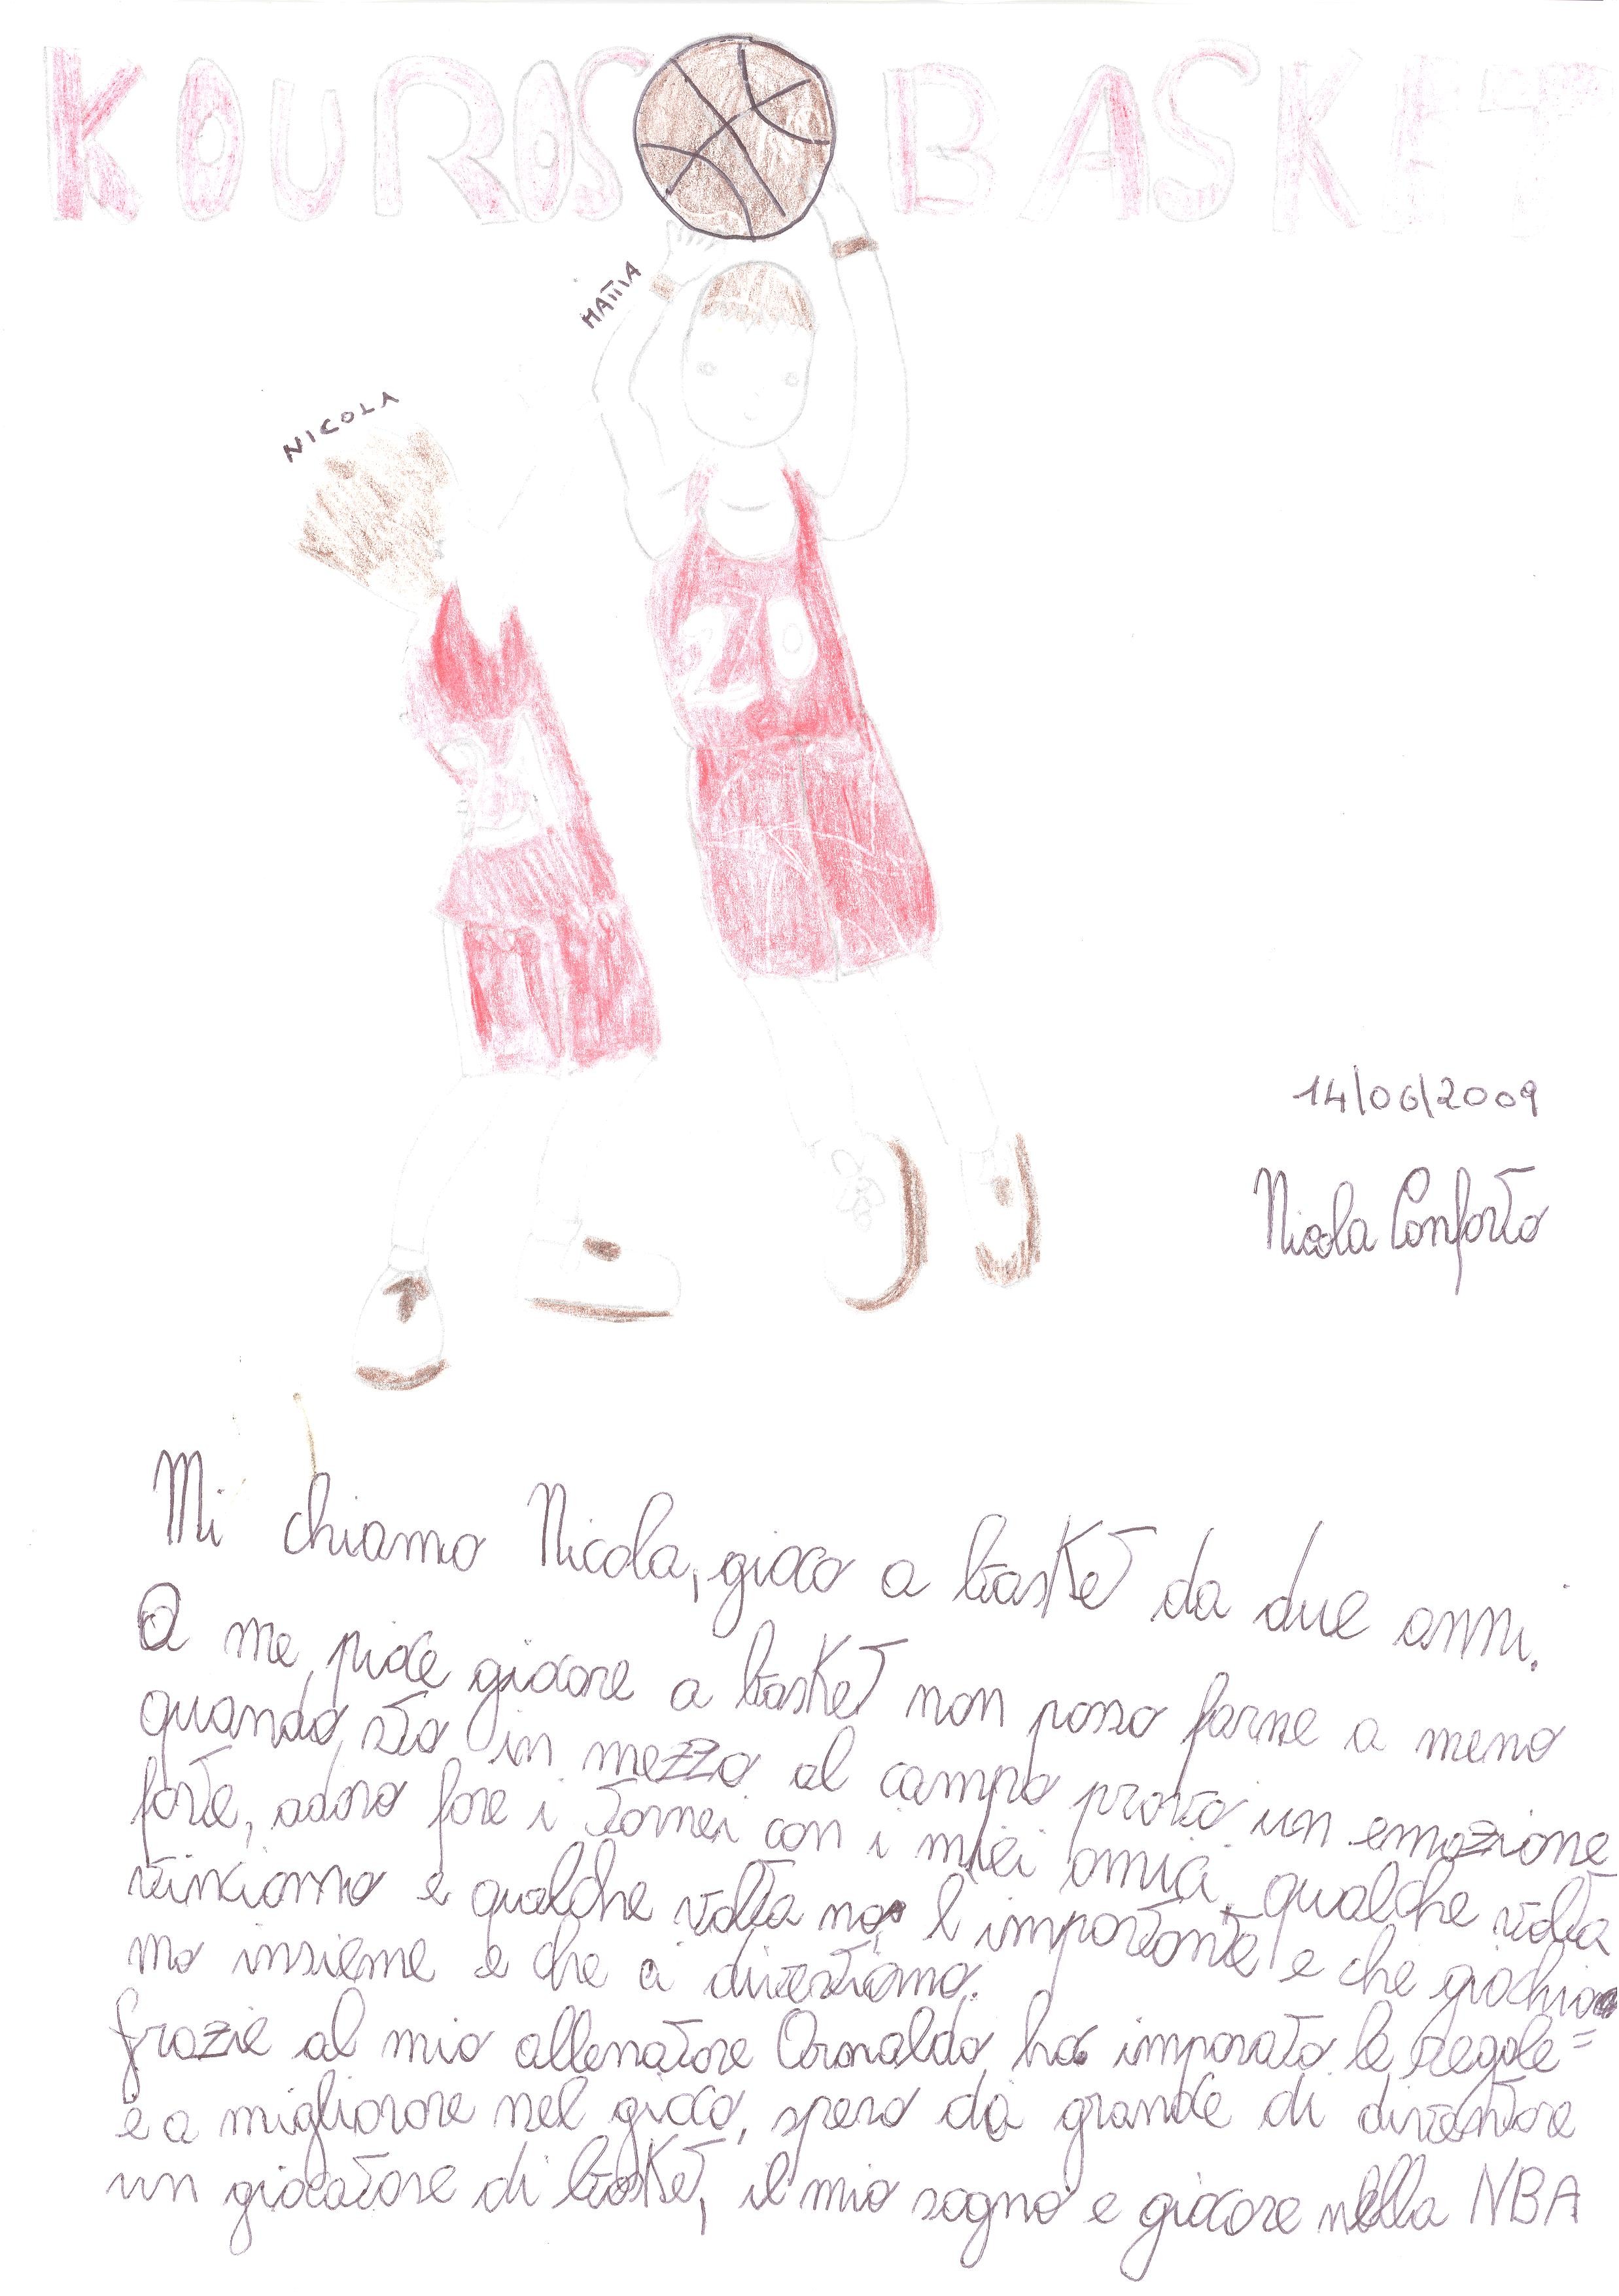 KOUROS BASKET
MATTIA
NICOLA
20
14/06/2009
Nicola Conforto
Mi chiamo Nicola, gioco a basket da due anni.
A me piace giocare a basket non posso farne a meno
quando sto in mezzo al campo provo un emozione
forte, adoro fare i tornei con i miei amici, qualche volta
vinciamo e qualche volta no, l importante e che giochia
mo insieme e che ci divertiamo.
Grazie al mio allenatore Arnaldo, ho imparato le regole
e a migliorare nel gioco, spero da grande di diventare
un giocatore di basket, il mio sogno e giocare nella NBA